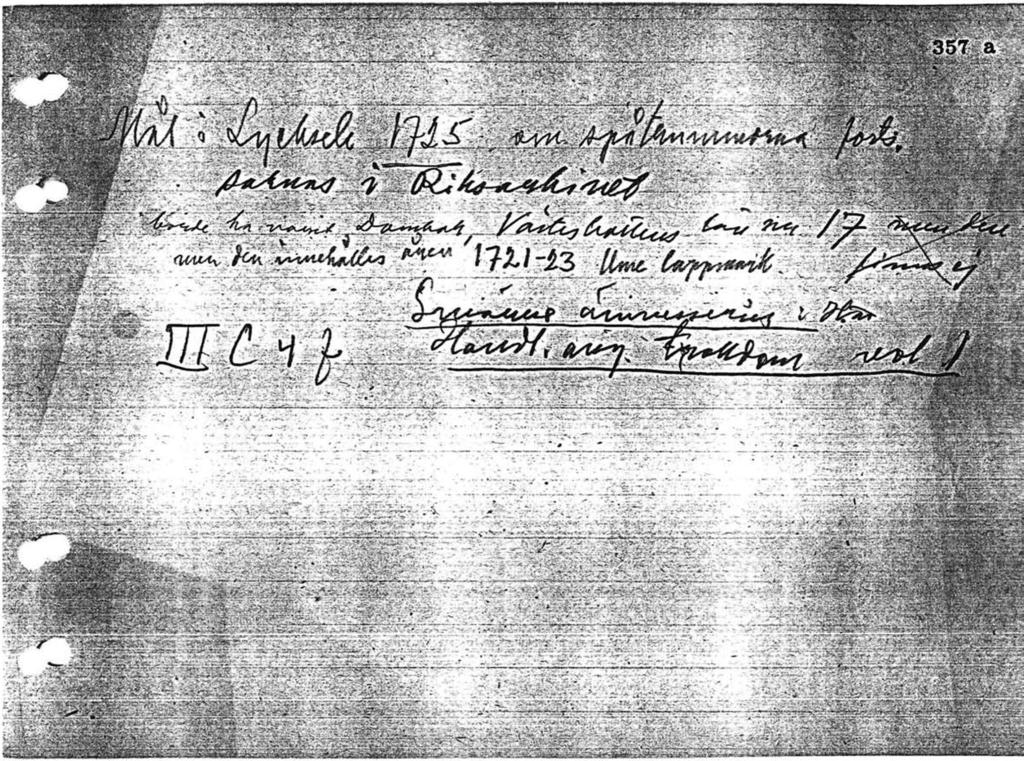 357 a
Mål i Lycksele 1725 om spåtrummorna forts.
saknas i Riksarkivet
borde ha varit Dombok, Västerbottens län nr 17 men den
men den innehåller åren 1721-23 Ume lappmark finns ej
i
III C 4 f Handl. ang. trolldom vol 1